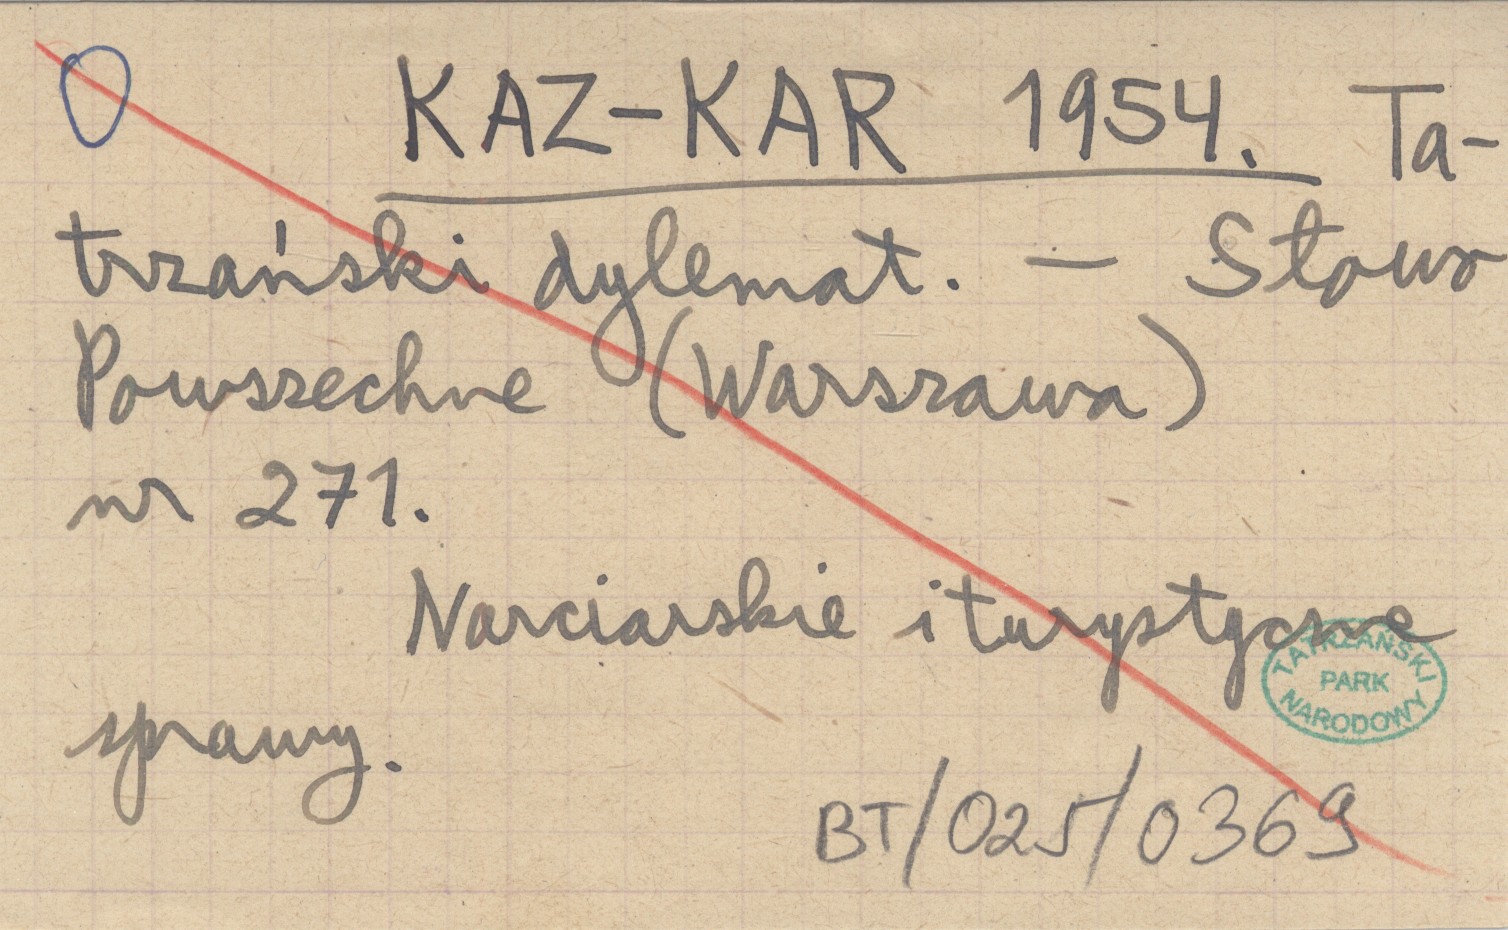 KAZ-KAR 1954. Ta-
trzański dylemat. — Słowo
Powszechne (Warszawa)
nr 271.
Narciarskie i turystyczne
sprawy.
TATRZAŃSKI
PARK
NARODOWY
BT/025/0369